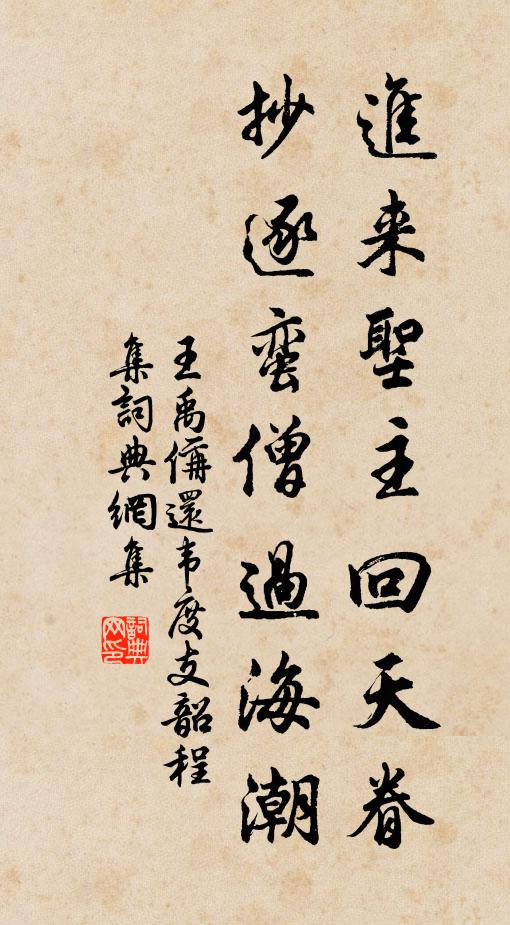 進来聖主回天眷
抄逐蛮僧過海潮
王禹偁還韦度支韶程
集詞典網集
詞典網印